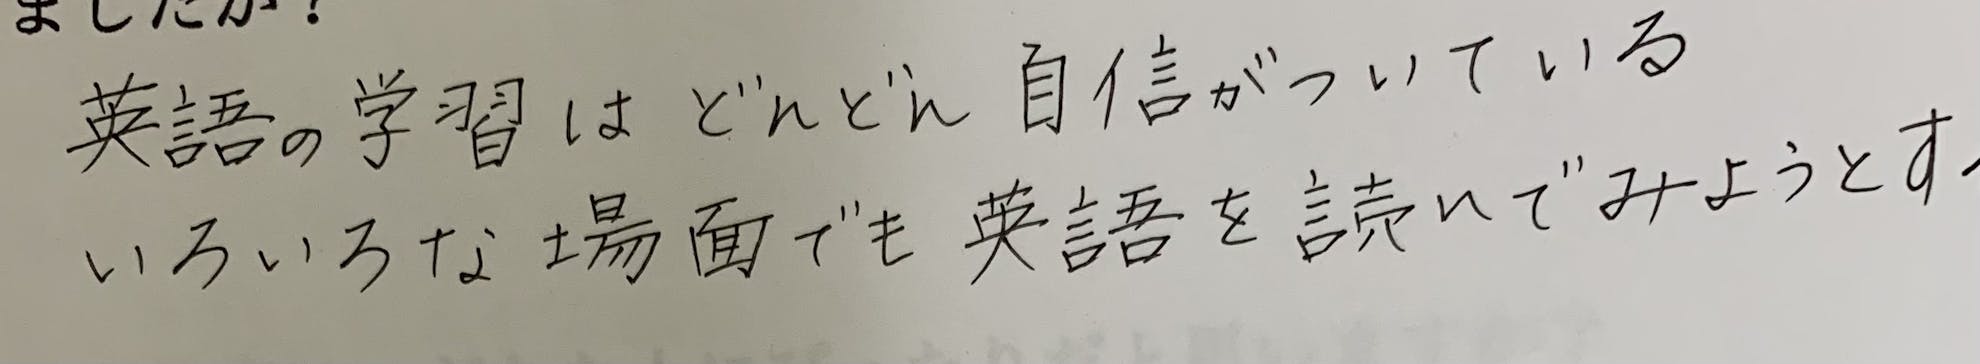 ましたか?
英語の学習はどんどん自信がついている
いろいろな場面でも英語を読んでみようとす